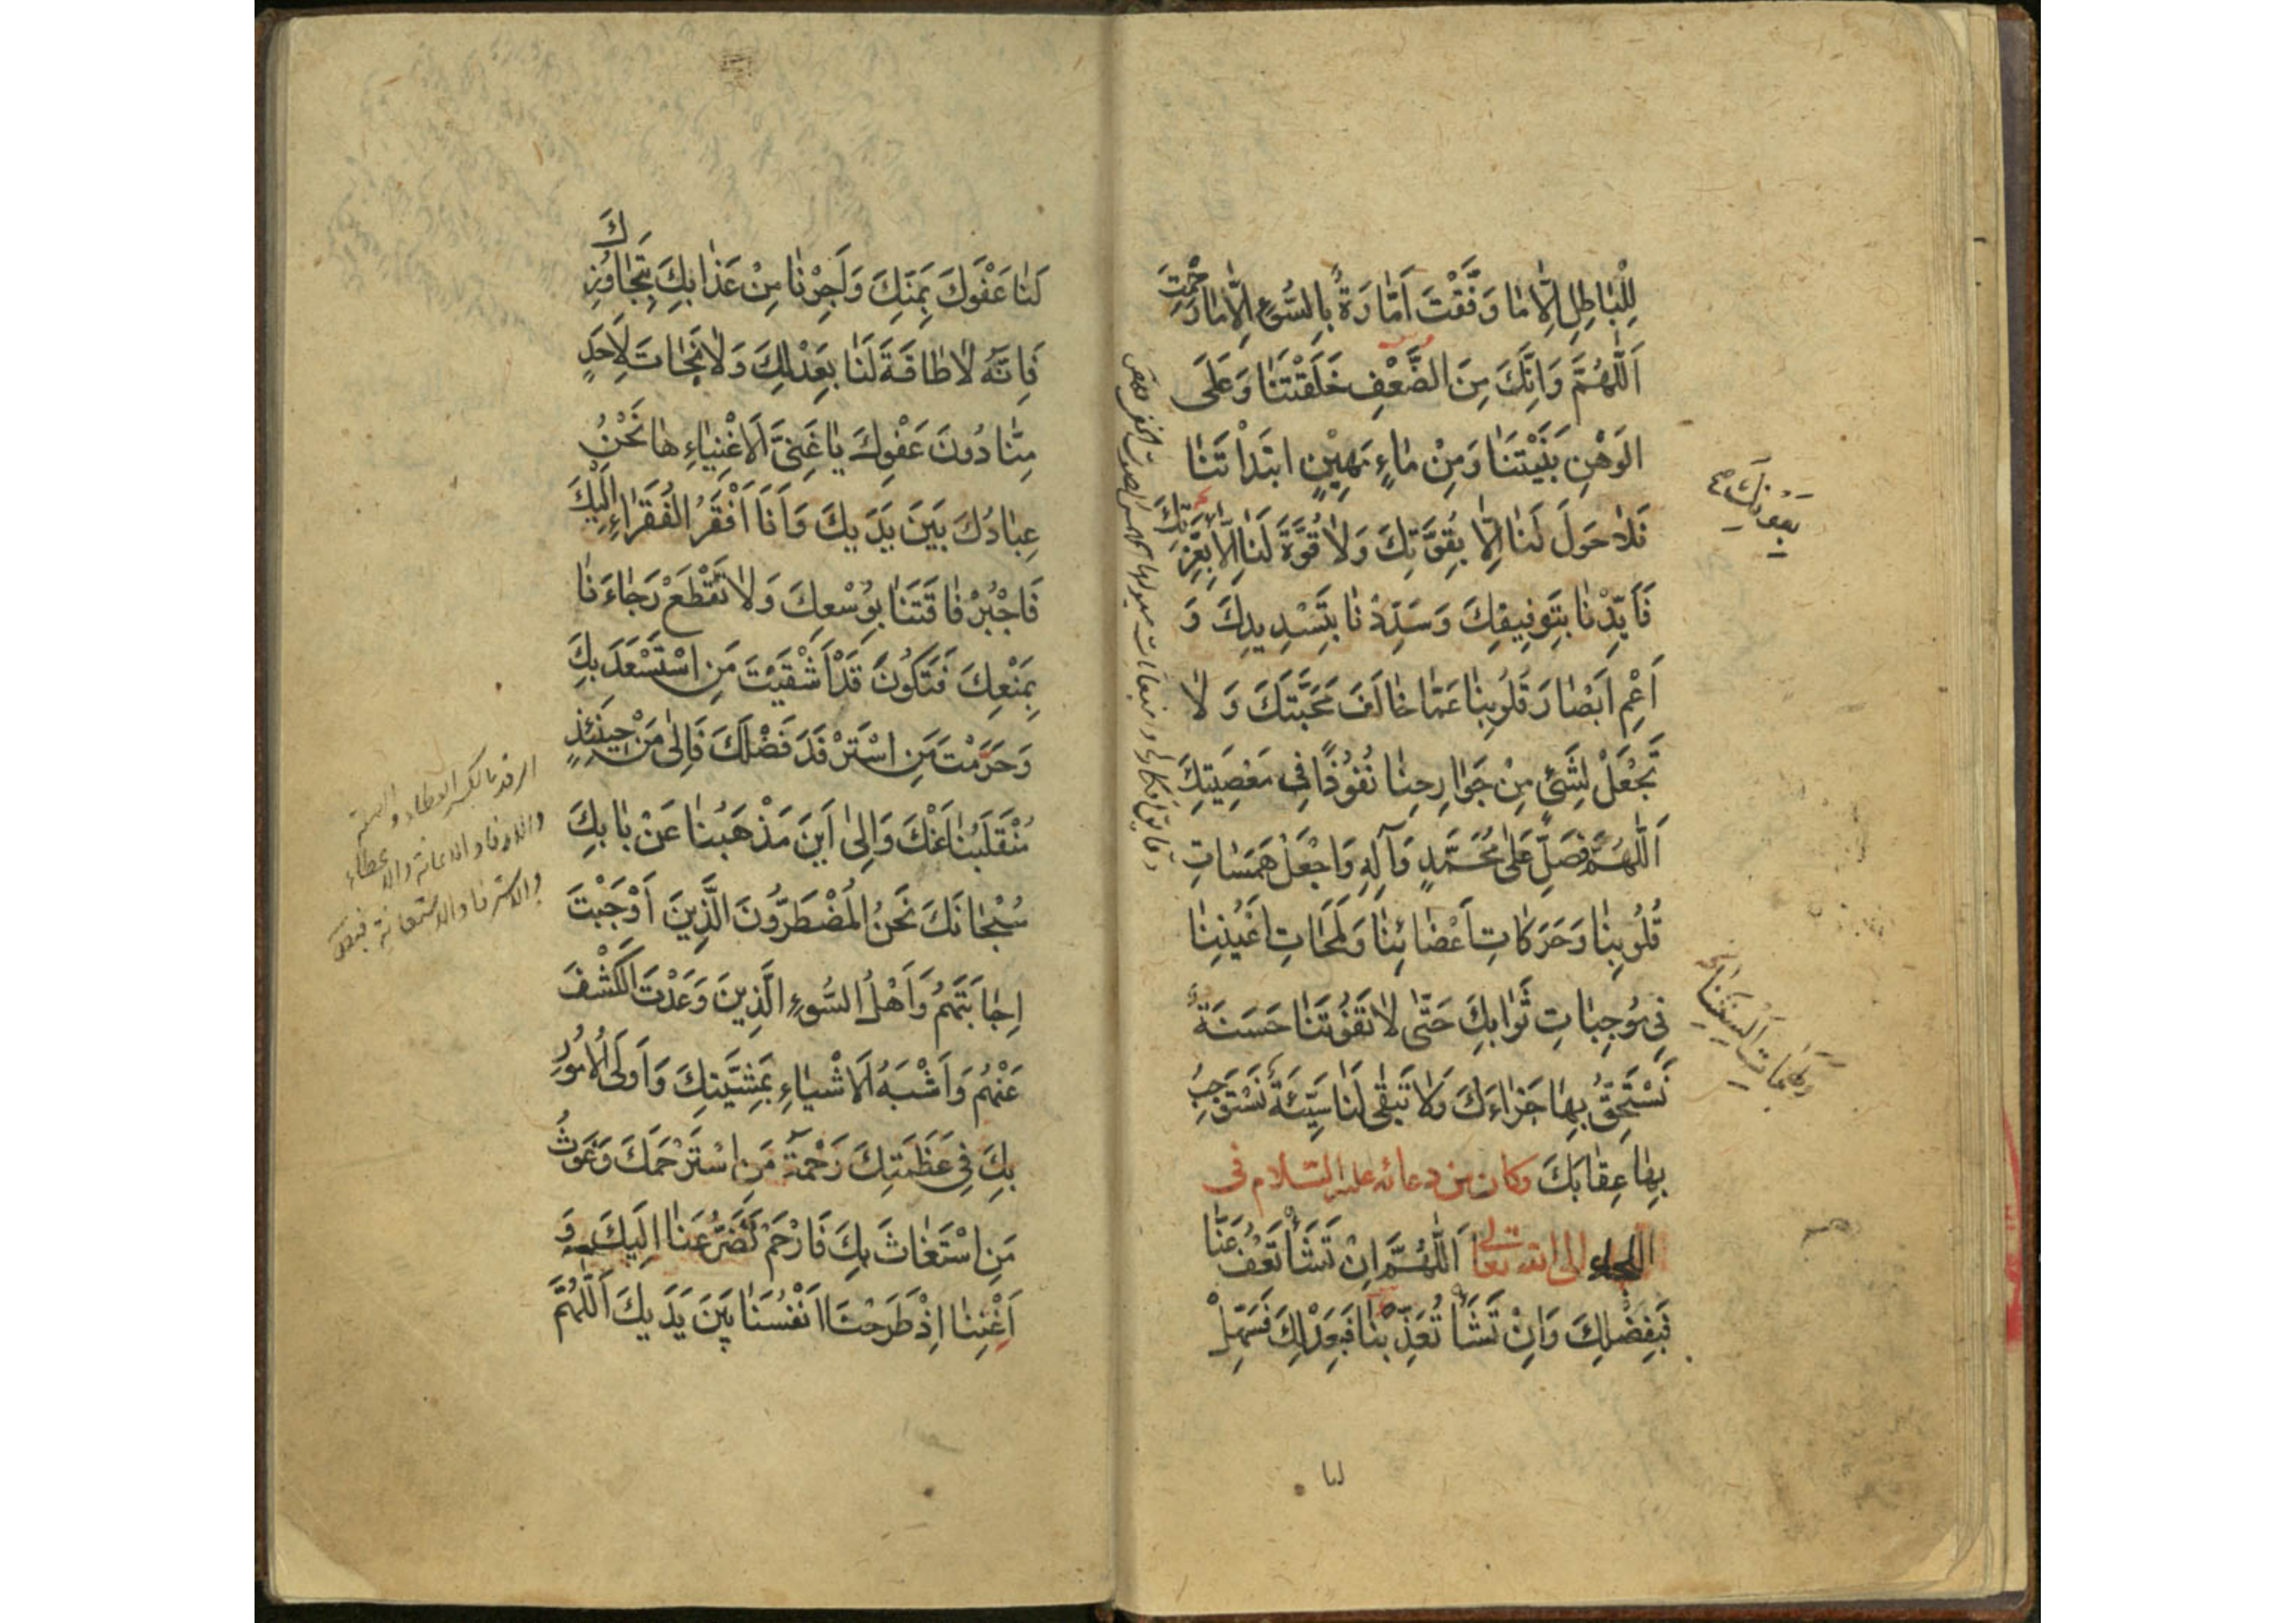 لِلْبَاطِلِ اِلَّا مَا وَفَّقْتَ اَمَّارَةٌ بِالسُّوءِ اِلَّا مَا رَحِمْتَ
اَللّٰهُمَّ وَاِنَّكَ مِنَ الضَّعْفِ خَلَقْتَنَا وَعَلَى
الوَهْنِ بَنَيْتَنَا وَمِنْ مَاءٍ مَهِيْنٍ ابْتَدَاْتَنَا
فَلَا حَوْلَ لَنَا اِلَّا بِقُوَّتِكَ وَلَا قُوَّةَ لَنَا اِلَّا بِعِزَّتِكَ
فَاَيِّدْنَا بِتَوفِيقِكَ وَسَدِّدْنَا بِتَسْدِيدِكَ وَ
اَعْمِ اَبْصَارَ قُلُوبِنَا عَمَّا خَالَفَ مَحَبَّتَكَ وَلَا
تَجْعَلْ لِشَيْءٍ مِنْ جَوَارِحِنَا نُفُوذًا فِي مَعْصِيَتِكَ
اَللّٰهُمَّ فَصَلِّ عَلٰى مُحَمَّدٍ وَآلِهِ وَاجْعَلْ هَمَسَاتِ
قُلُوبِنَا وَحَرَكَاتِ اَعْضَائِنَا وَلَمَحَاتِ اَعْيُنِنَا
فِي مُوجِبَاتِ ثَوَابِكَ حَتّٰى لَا تَفُوتَنَا حَسَنَةٌ
نَسْتَحِقُّ بِهَا جَزَاءَكَ وَلَا تَبْقٰى لَنَا سَيِّئَةٌ نَسْتَوْجِبُ
بِهَا عِقَابَكَ وكان من دعائه عليه السلام فى
اللجاء الى الله تعالى اَللّٰهُمَّ اِنْ تَشَأْ تَعْفُ عَنَّا
فَبِفَضْلِكَ وَاِنْ تَشَأْ تُعَذِّبْنَا فَبِعَدْلِكَ فَسَهِّلْ
لنا
لَنَا عَفْوَكَ بِمَنِّكَ وَاَجِرْنَا مِنْ عَذَابِكَ بِتَجَاوُزِكَ
فَاِنَّهُ لَا طَاقَةَ لَنَا بِعَدْلِكَ وَلَا نَجَاتَ لِاَحَدٍ
مِنَّا دُونَ عَفْوِكَ يَا غَنِىَّ الْاَغْنِيَاءِ هَا نَحْنُ
عِبَادُكَ بَيْنَ يَدَيكَ وَاَنَا اَفْقَرُ الْفُقَرَاءِ اِلَيْكَ
فَاجْبُرْ فَاقَتَنَا بِوُسْعِكَ وَلَا تَقْطَعْ رَجَاءَنَا
بِمَنْعِكَ فَتَكُونَ قَدْ اَشْقَيْتَ مَنِ اسْتَسْعَدَ بِكَ
وَحَرَمْتَ مَنِ اسْتَرْفَدَ فَضْلَكَ فَاِلٰى مَنْ حِينَئِذٍ
مُنْقَلَبُنَا عَنْكَ وَاِلٰى اَيْنَ مَذْهَبُنَا عَنْ بَابِكَ
سُبْحَانَكَ نَحْنُ الْمُضْطَرُّونَ الَّذِينَ اَوْجَبْتَ
اِجَابَتَهُمْ وَاَهْلُ السُّوءِ الَّذِينَ وَعَدْتَ الْكَشْفَ
عَنْهُمْ وَاَشْبَهُ الْاَشْيَاءِ بِمَشِيَّتِكَ وَاَوْلَى الْاُمُورِ
بِكَ فِي عَظَمَتِكَ رَحْمَةُ مَنِ اسْتَرْحَمَكَ وَغَوْثُ
مَنِ اسْتَغَاثَ بِكَ فَارْحَمْ تَضَرُّعَنَا اِلَيكَ وَ
اَغْنِنَا اِذْ طَرَحْنَا اَنْفُسَنَا بَيْنَ يَدَيكَ اَللّٰهُمَّ